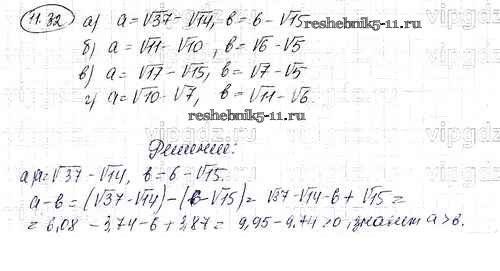 11.32 а) a = √37 - √14, в = 6 - √15
reshebnik5-11.ru
б) a = √11 - √10, в = √6 - √5
в) a = √17 - √15, в = √7 - √5
г) a = √10 - √7, в = √11 - √6.
reshebnik5-11.ru
Решение:
а) a = √37 - √14, в = 6 - √15.
a - в = (√37 - √14) - (6 - √15) = √37 - √14 - 6 + √15 =
= 6,08 - 3,74 - 6 + 3,87 = 9,95 - 9,74 > 0, значит a > в.
vipgdz.ru